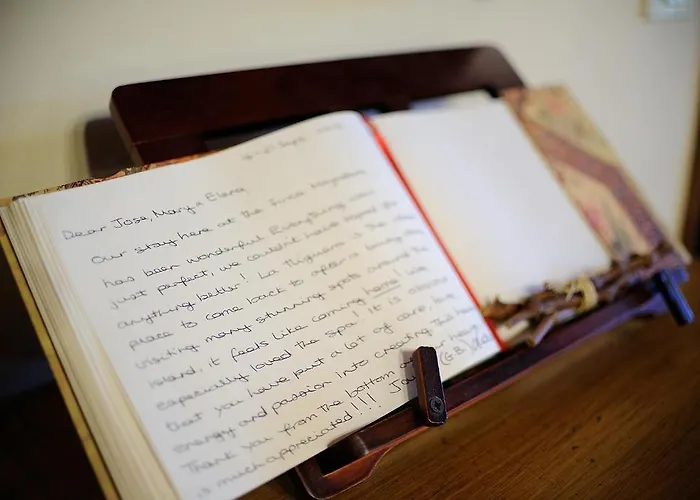 Sept.
Dear Jose, Mary + Elena,
Our stay here at the Finca
has been wonderful. Everything was
just perfect, we couldn't have
anything better! La is the
place to come back to after a day
visiting many stunning spots around the
island, it feels like coming home! We
especially loved the spa! It is obvious
that you have put a lot of care,
energy and passion into creating this
Thank you from the bottom of our
is much appreciated!!! (GB)